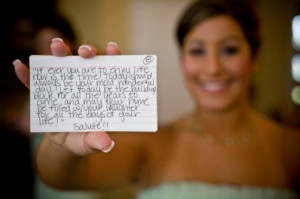 "If ever you are to enjoy life
now is the time! Today should
always be your most wonderful
day! Let today be the building
block for all the years to
come, and may your home
be filled w/your laughter
for all the days of your
life!"
Salute!!